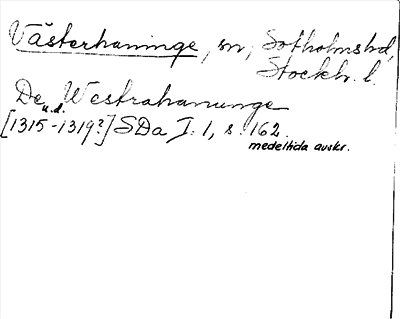 Västerhaninge, sn, Sotholmshd,
Stockh. l.
De Westrahanunge
u.d.
[1315-1319?] SDa I: 1, s. 162.
medeltida avskr.